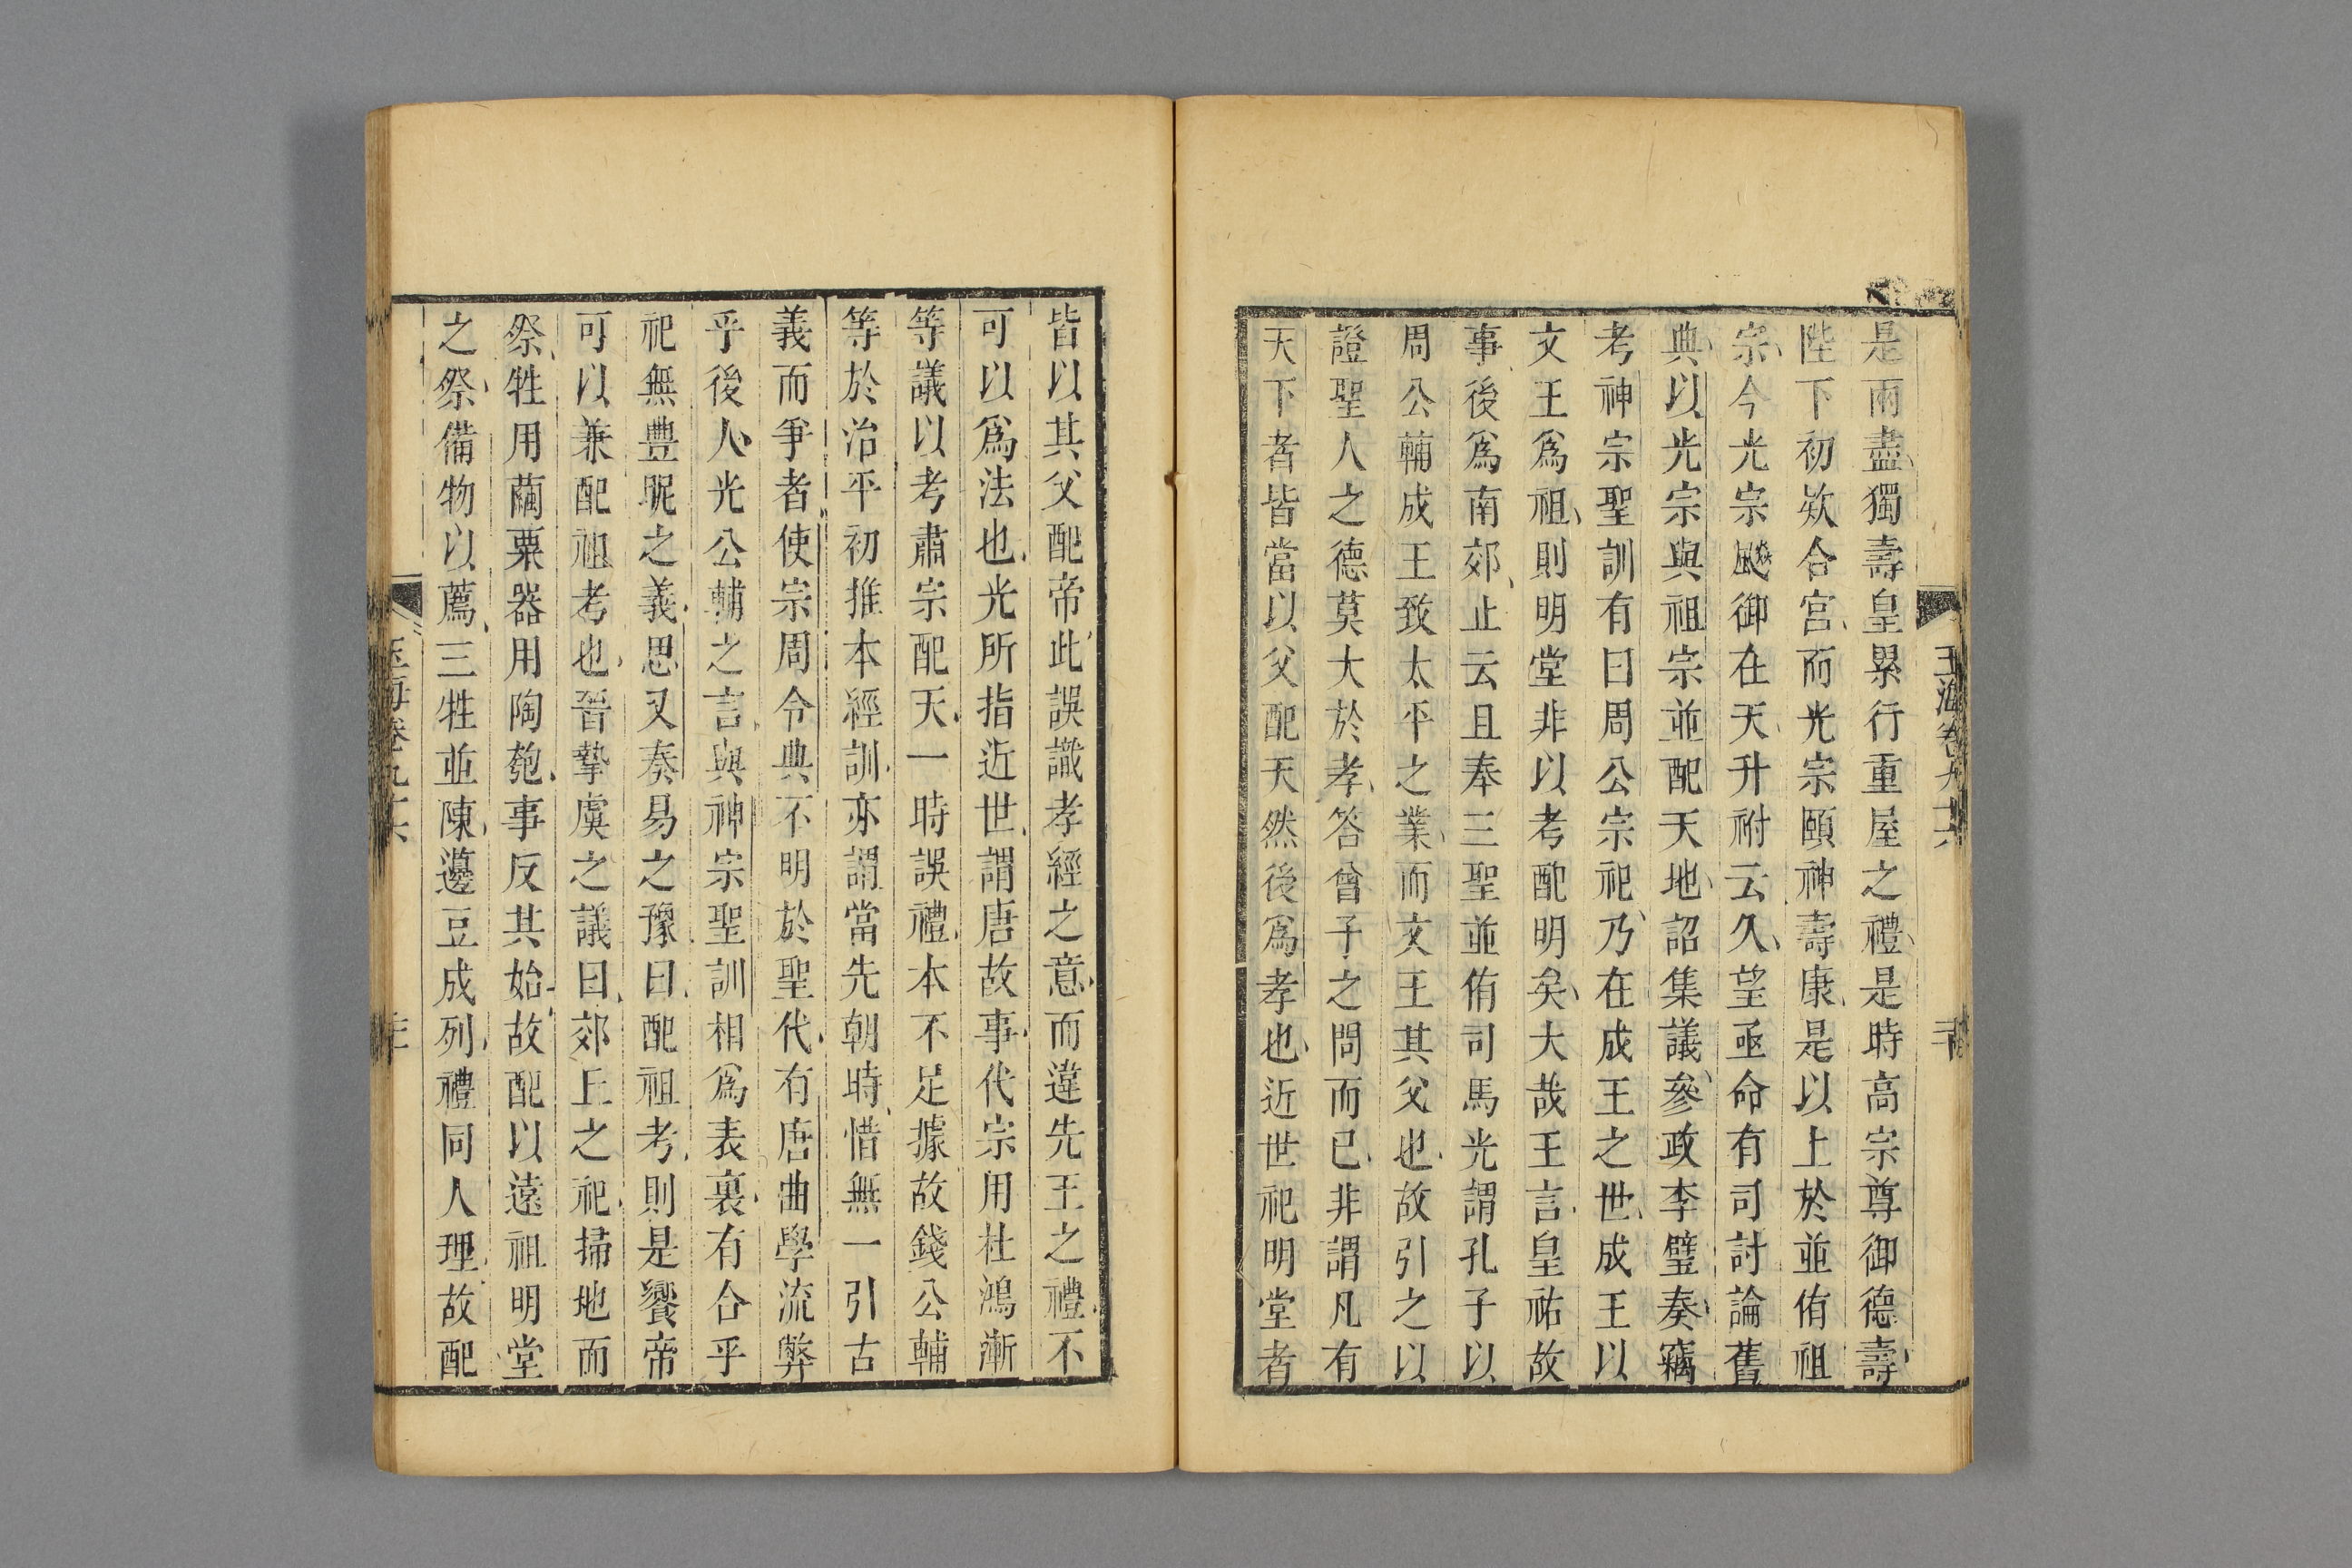 玉海卷九十六
是雨盡獨壽皇累行重屋之禮是時高宗尊御德壽
陛下初欵合宮而光宗頤神壽康是以上於並侑祖
宗今光宗飇御在天升祔云久望亟命有司討論舊
典以光宗與祖宗並配天地詔集議參政李璧奏竊
考神宗聖訓有曰周公宗祀乃在成王之世成王以
文王爲祖則明堂非以考配明矣大哉王言皇祐故
事後爲南郊止云且奉三聖並侑司馬光謂孔子以
周公輔成王致太平之業而文王其父也故引之以
證聖人之德莫大於孝答曾子之問而已非謂凡有
天下者皆當以父配天然後爲孝也近世祀明堂者
皆以其父配帝此誤識孝經之意而違先王之禮不
可以爲法也光所指近世謂唐故事代宗用杜鴻漸
等議以考肅宗配天一時誤禮本不足據故錢公輔
等於治平初推本經訓亦謂當先朝時惜無一引古
義而爭者使宗周令典不明於聖代有唐曲學流弊
乎後人光公輔之言與神宗聖訓相爲表裏有合乎
祀無豊昵之義思又奏易之豫曰配祖考則是饗帝
可以兼配祖考也晉摯虞之議曰郊丘之祀掃地而
祭牲用繭粟器用陶匏事反其始故配以遠祖明堂
之祭備物以薦三牲並陳籩豆成列禮同人理故配
玉海卷九十六